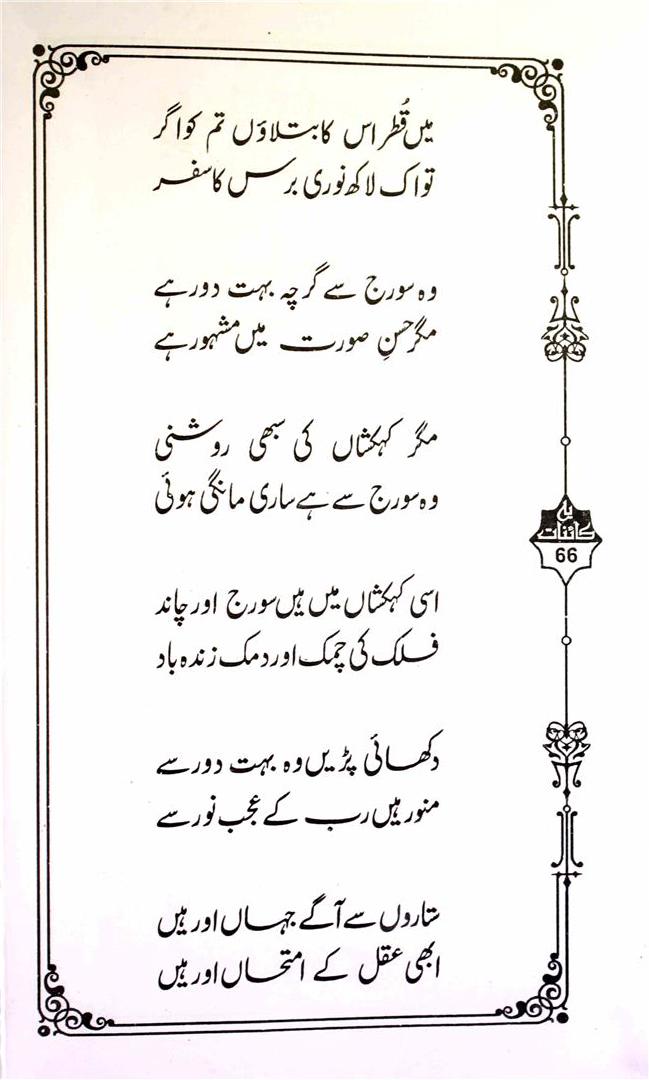 میں قُطر اس کا بتلاؤں تم کو اگر
تو اک لاکھ نوری برس کا سفر
وہ سورج سے گرچہ بہت دور ہے
مگر حسنِ صورت میں مشہور ہے
مگر کہکشاں کی سبھی روشنی
وہ سورج سے ہے ساری مانگی ہوئی
اسی کہکشاں میں ہیں سورج اور چاند
فلک کی چمک اور دمک زندہ باد
دکھائی پڑیں وہ بہت دور سے
منور ہیں رب کے عجب نور سے
ستاروں سے آگے جہاں اور ہیں
ابھی عقل کے امتحاں اور ہیں
یہ
کائنات
66